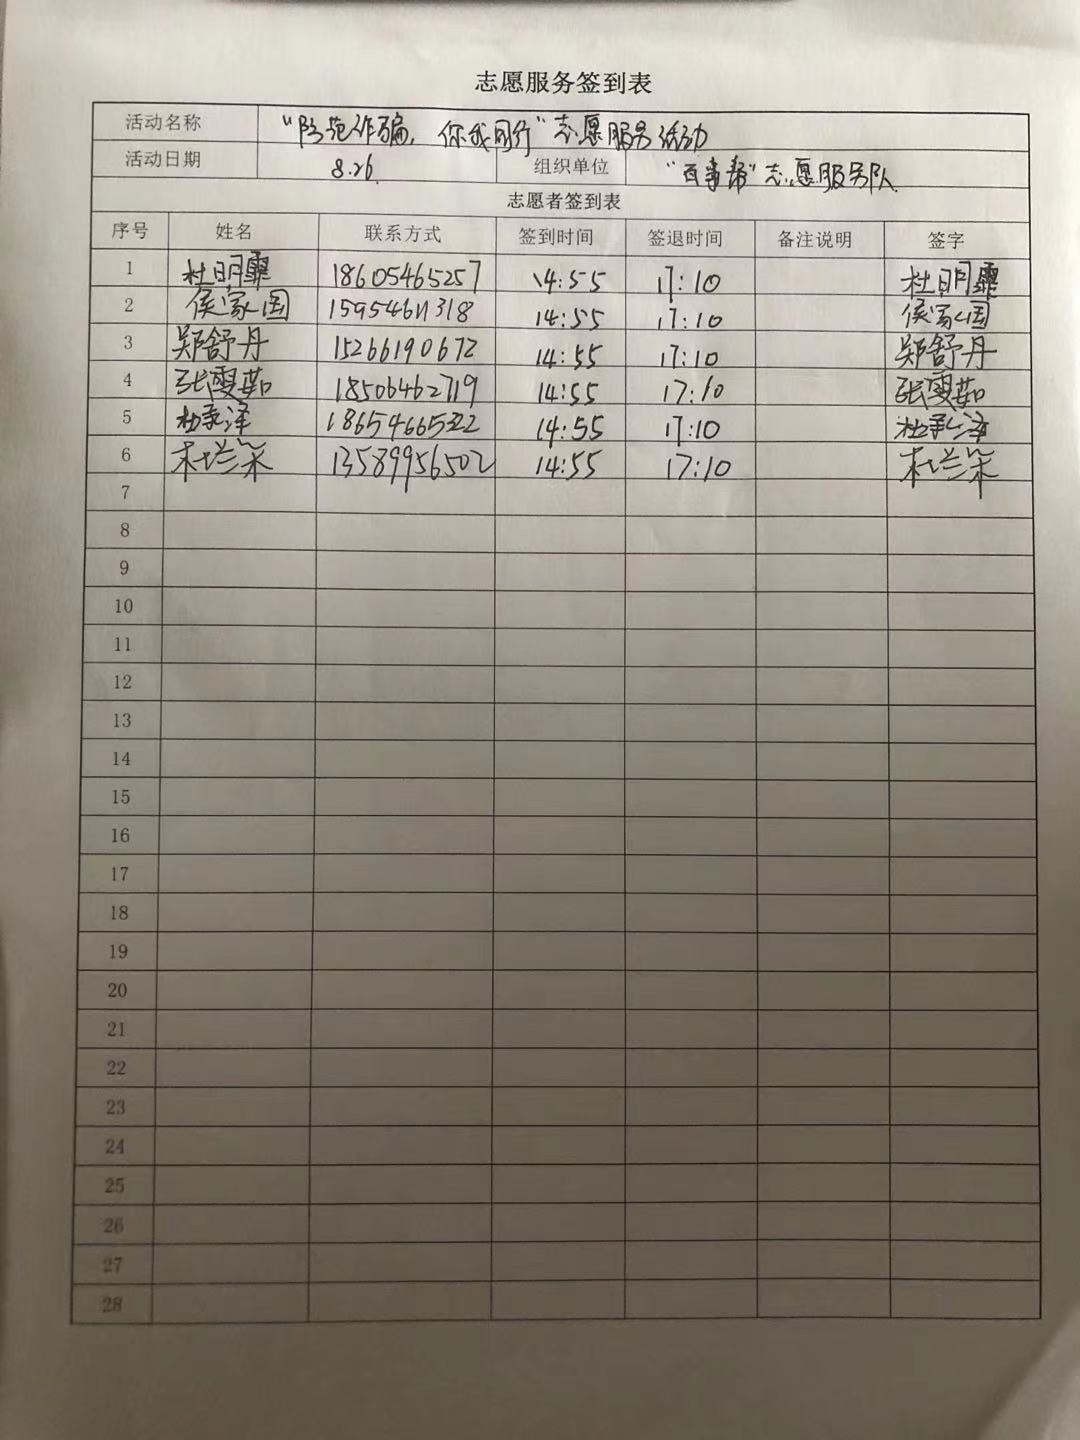 志愿服务签到表
活动名称 “防范诈骗，你我同行”志愿服务活动
活动日期 8.26. 组织单位 “百事帮”志愿服务队
志愿者签到表
序号 姓名 联系方式 签到时间 签退时间 备注说明 签字
1 杜明霏 18605465257 14:55 17:10 杜明霏
2 侯家国 15954611318 14:55 17:10 侯家国
3 郑舒丹 15266190672 14:55 17:10 郑舒丹
4 张雯茹 18506462719 14:55 17:10 张雯茹
5 杜承泽 18654665322 14:55 17:10 杜承泽
6 13589956502 14:55 17:10
7
8
9
10
11
12
13
14
15
16
17
18
19
20
21
22
23
24
25
26
27
28